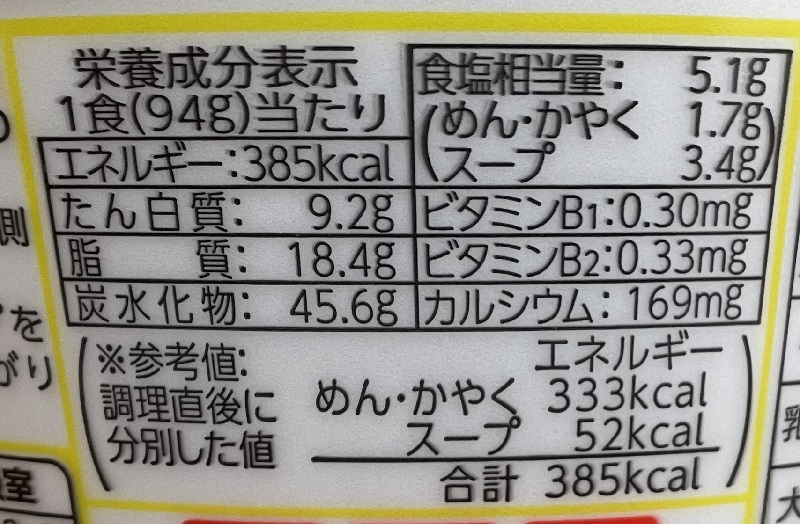 栄養成分表示
1食(94g)当たり
エネルギー:385kcal
たん白質: 9.2g
脂 質: 18.4g
炭水化物: 45.6g
食塩相当量: 5.1g
(めん・かやく 1.7g
スープ 3.4g)
ビタミンB1:0.30mg
ビタミンB2:0.33mg
カルシウム:169mg
(※参考値:
調理直後に
分別した値
エネルギー
めん・かやく 333kcal
スープ 52kcal
合計 385kcal)
側
を
がり
室